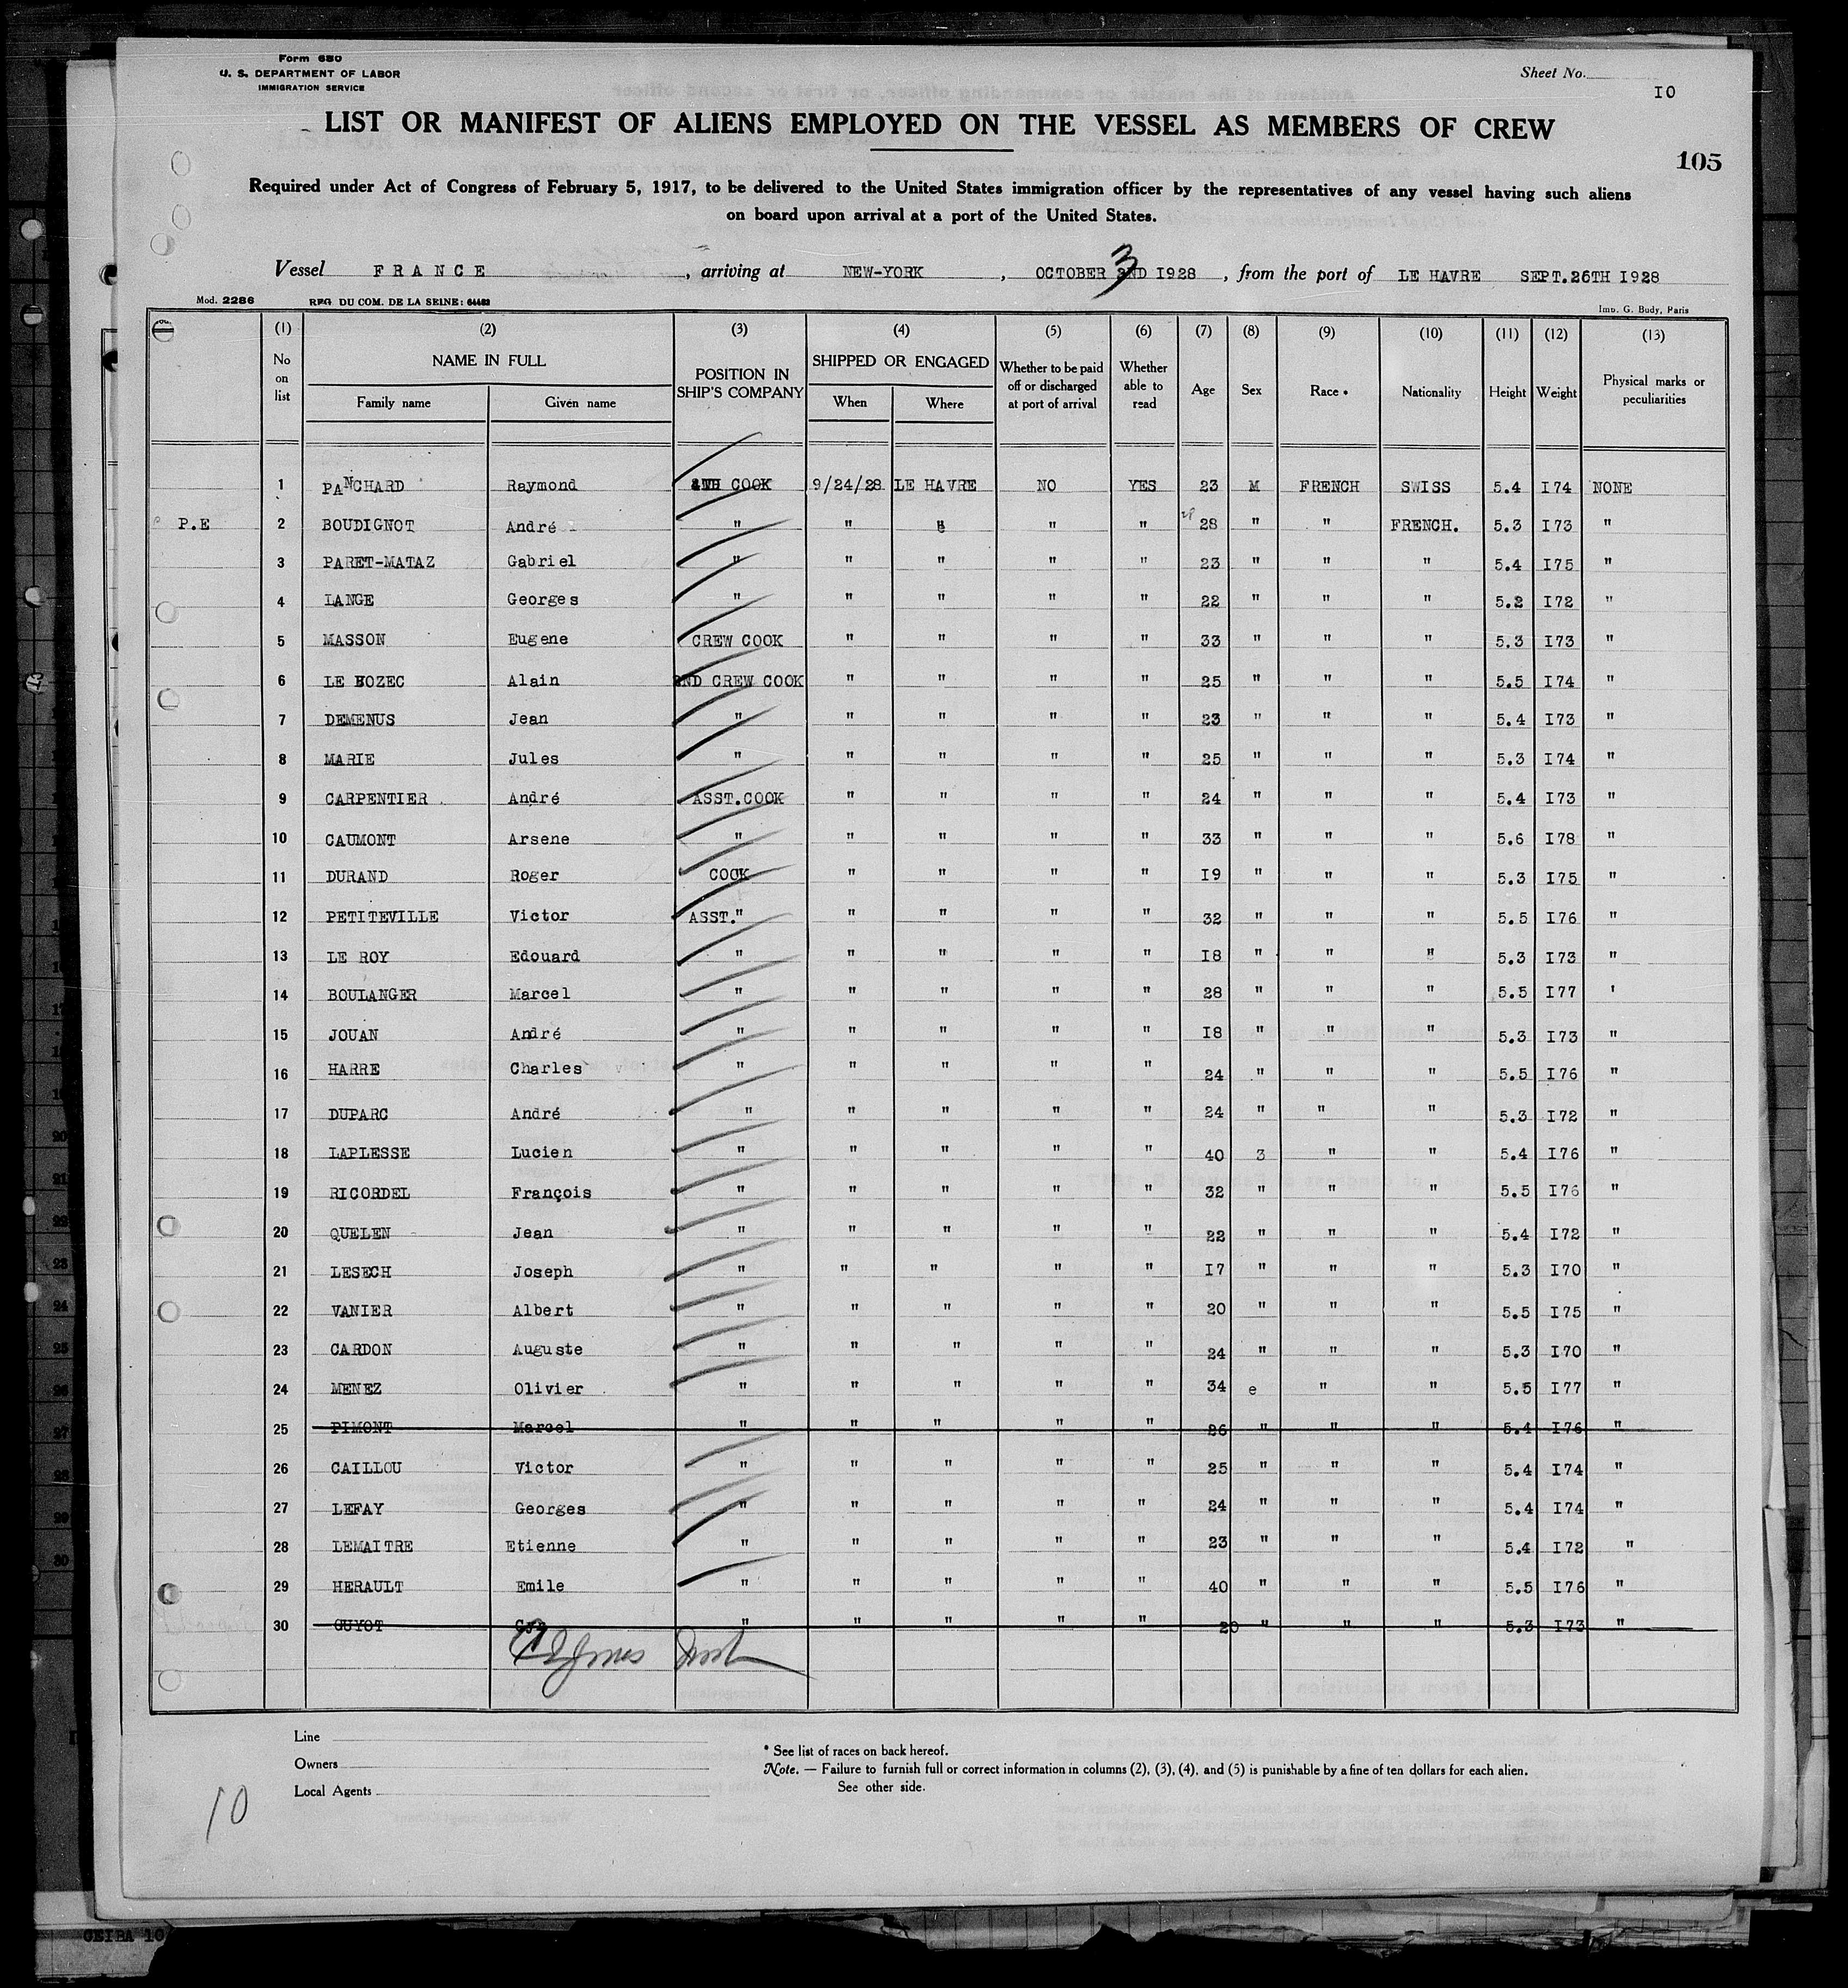 Form 680
U. S. DEPARTMENT OF LABOR
IMMIGRATION SERVICE
Sheet No.
10
LIST OR MANIFEST OF ALIENS EMPLOYED ON THE VESSEL AS MEMBERS OF CREW
105
Required under Act of Congress of February 5, 1917, to be delivered to the United States immigration officer by the representatives of any vessel having such aliens
on board upon arrival at a port of the United States.
Vessel FRANCE, arriving at NEW-YORK, OCTOBER 3 2ND 1928, from the port of LE HAVRE SEPT.26TH 1928
Mod. 2286 REG. DU COM. DE LA SEINE: 64483 Imp. G. Budy, Paris
(1) (2) (3) (4) (5) (6) (7) (8) (9) (10) (11) (12) (13)
No on list NAME IN FULL Family name Given name POSITION IN SHIP'S COMPANY SHIPPED OR ENGAGED When Where Whether to be paid off or discharged at port of arrival Whether able to read Age Sex Race * Nationality Height Weight Physical marks or peculiarities
1 PANCHARD Raymond 4TH COOK 9/24/28 LE HAVRE NO YES 23 M FRENCH SWISS 5.4 174 NONE
P.E 2 BOUDIGNOT André " " " " " 28 28 " " FRENCH. 5.3 173 "
3 PARET-MATAZ Gabriel " " " " " 23 " " " 5.4 175 "
4 LANGE Georges " " " " " 22 " " " 5.2 172 "
5 MASSON Eugene CREW COOK " " " " 33 " " " 5.3 173 "
6 LE BOZEC Alain 2ND CREW COOK " " " " 25 " " " 5.5 174 "
7 DEMENUS Jean " " " " " 23 " " " 5.4 173 "
8 MARIE Jules " " " " " 25 " " " 5.3 174 "
9 CARPENTIER André ASST.COOK " " " " 24 " " " 5.4 173 "
10 CAUMONT Arsene " " " " " 33 " " " 5.6 178 "
11 DURAND Roger COOK " " " " 19 " " " 5.3 175 "
12 PETITEVILLE Victor ASST." " " " " 32 " " " 5.5 176 "
13 LE ROY Edouard " " " " " 18 " " " 5.3 173 "
14 BOULANGER Marcel " " " " " 28 " " " 5.5 177 '
15 JOUAN André " " " " " 18 " " " 5.3 173 "
16 HARRE Charles " " " " " 24 " " " 5.5 176 "
17 DUPARC André " " " " " 24 " " " 5.3 172 "
18 LAPLESSE Lucien " " " " " 40 3 " " 5.4 176 "
19 RICORDEL François " " " " " 32 " " " 5.5 176 "
20 QUELEN Jean " " " " " 22 " " " 5.4 172 "
21 LESECH Joseph " " " " " 17 " " " 5.3 170 "
22 VANIER Albert " " " " " 20 " " " 5.5 175 "
23 CARDON Auguste " " " " " 24 " " " 5.3 170 "
24 MENEZ Olivier " " " " " 34 e " " 5.5 177 "
25 PIMONT Marcel " " " " " 26 " " " 5.4 176 "
26 CAILLOU Victor " " " " " 25 " " " 5.4 174 "
27 LEFAY Georges " " " " " 24 " " " 5.4 174 "
28 LEMAITRE Etienne " " " " " 23 " " " 5.4 172 "
29 HERAULT Emile " " " " " 40 " " " 5.5 176 "
30 GUYOT " " " " " 20 " " " 5.3 173 "
Line
Owners
Local Agents
* See list of races on back hereof.
Note. — Failure to furnish full or correct information in columns (2), (3), (4), and (5) is punishable by a fine of ten dollars for each alien.
See other side.
10